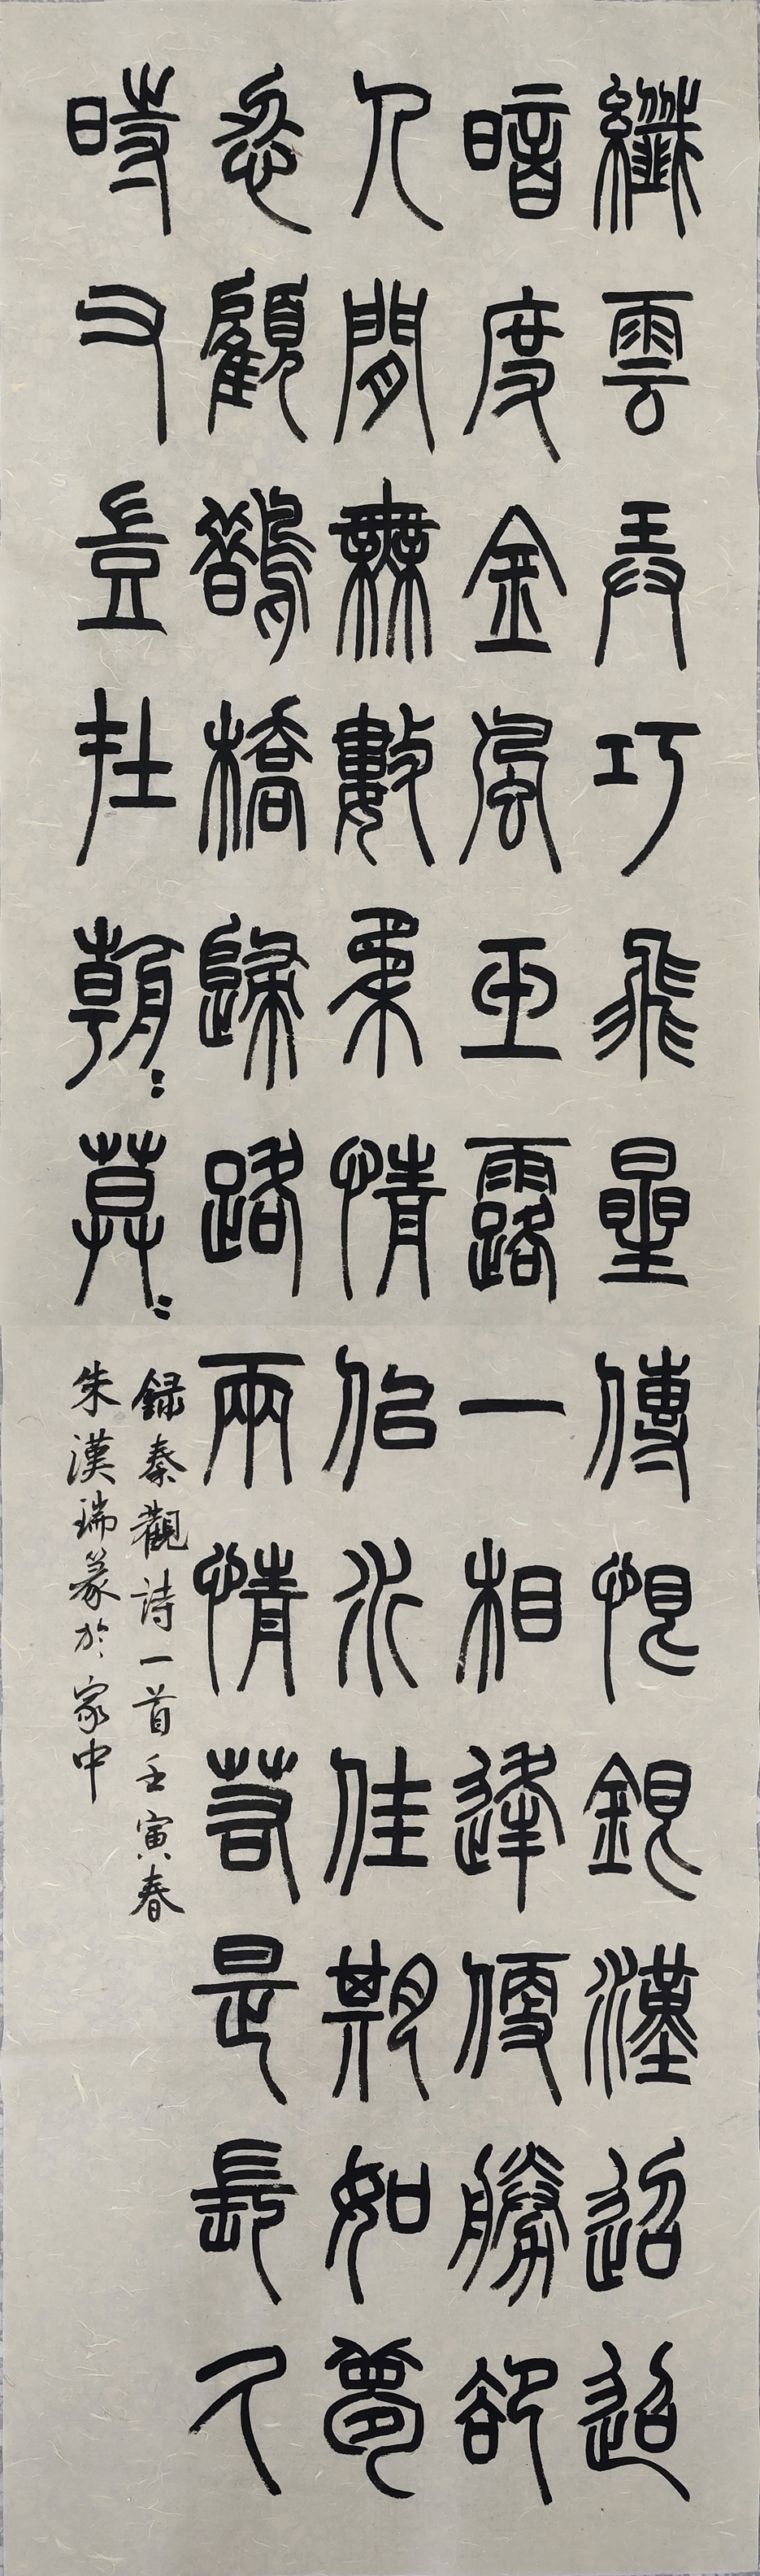 纖雲弄巧飛星傳恨銀漢迢迢
暗度金風玉露一相逢便勝卻
人間無數柔情似水佳期如夢
忍顧鵲橋歸路兩情若是長久
時又豈在朝〻莫〻
録秦觀詩一首壬寅春
朱漢瑞篆於家中